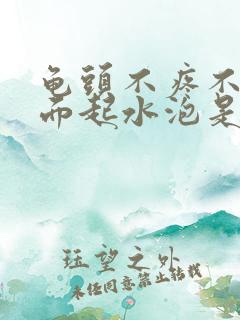 龟頭不疼不
而起水泡是
珏望之外
未经同意禁止转载